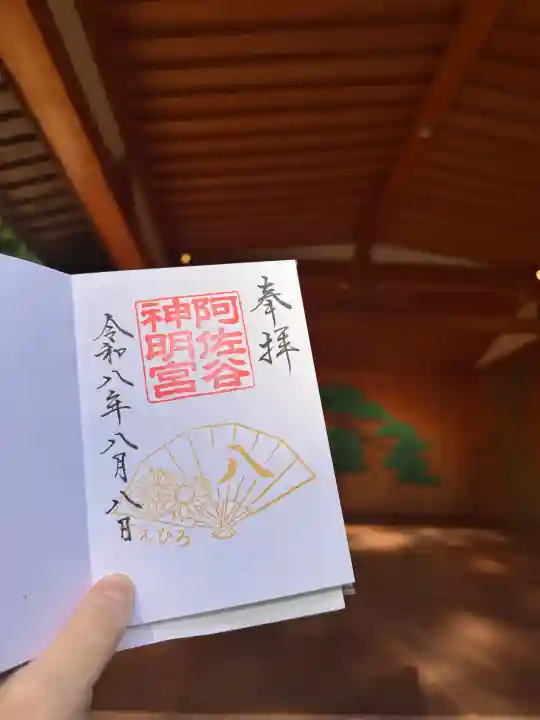 奉拝
阿佐谷
神明宮
八
すゑひろ
令和八年八月八日